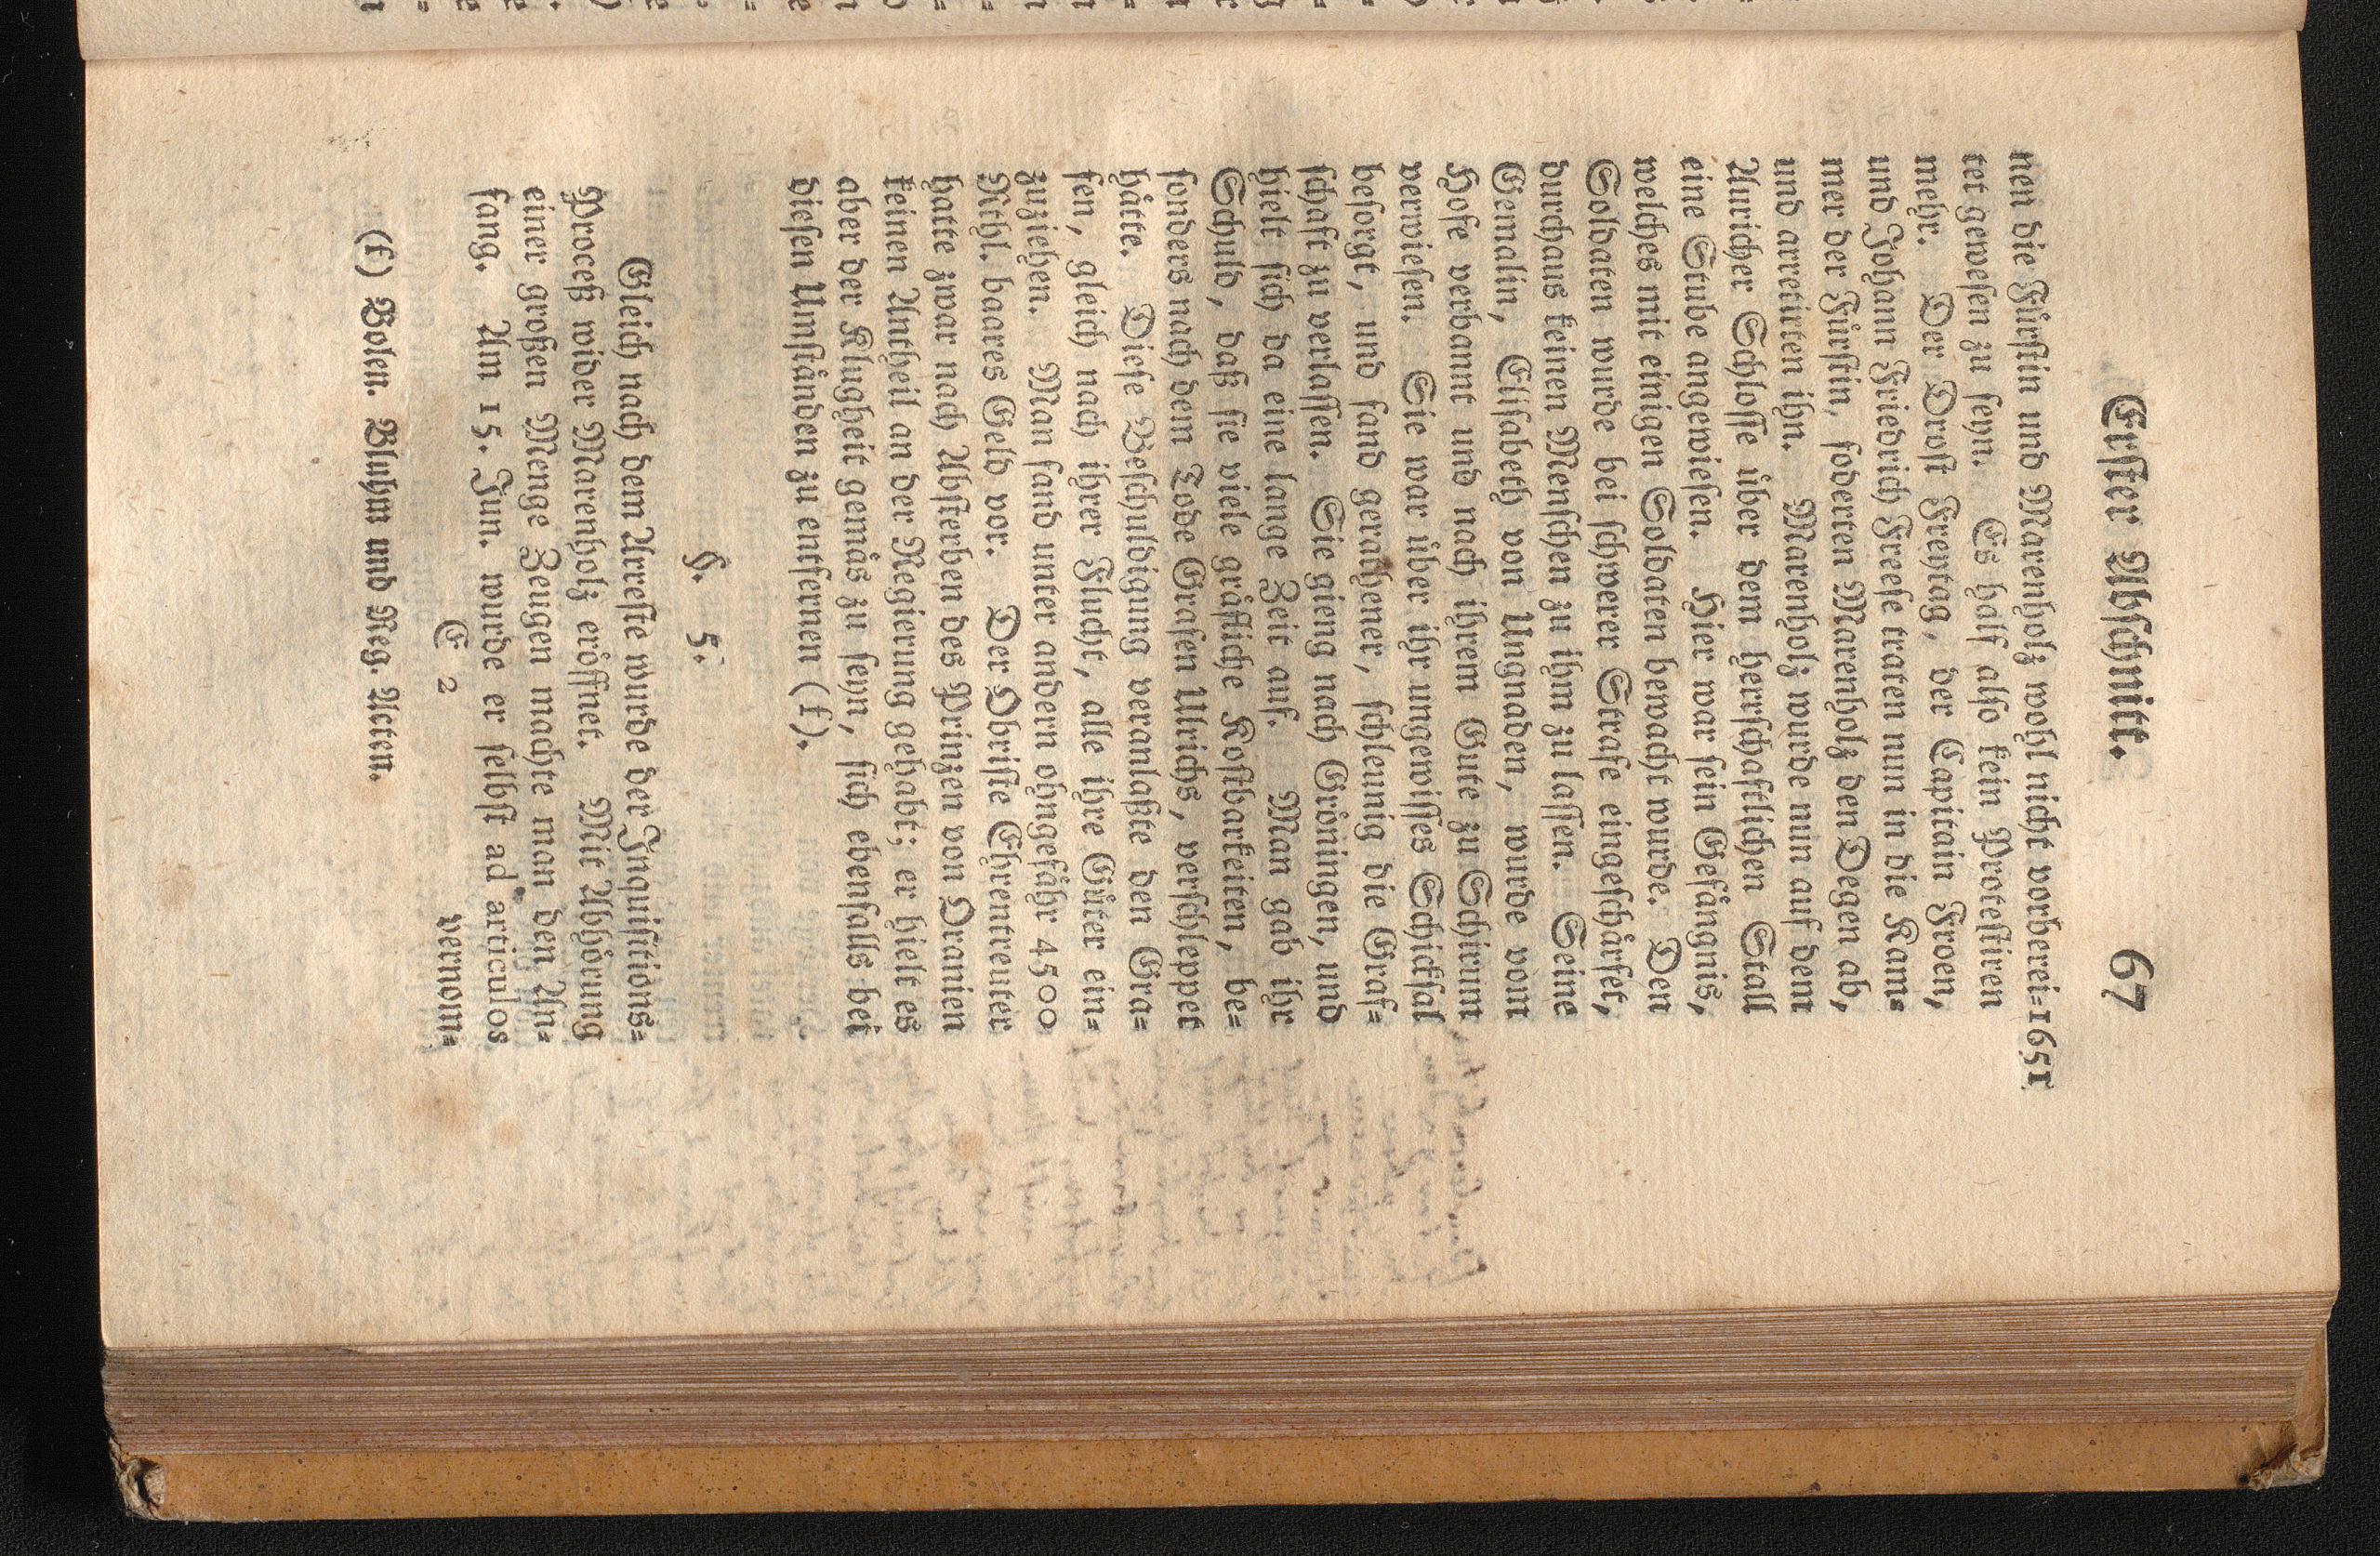 Erster Abschnitt. 67
nen die Fürstin und Marenholz wohl nicht vorberei= 1651
tet gewesen zu seyn. Es half also kein Protestiren
mehr. Der Drost Freytag, der Capitain Kroen,
und Johann Friedrich Freese traten nun in die Kam=
mer der Fürstin, foderten Marenholz den Degen ab,
und arretirten ihn. Marenholz wurde nun auf dem
Auricher Schlosse über dem herrschaftlichen Stall
eine Stube angewiesen. Hier war sein Gefängnis,
welches mit einigen Soldaten bewacht wurde. Den
Soldaten wurde bei schwerer Strafe eingeschärfet,
durchaus keinen Menschen zu ihm zu lassen. Seine
Gemalin, Elisabeth von Ungnaden, wurde vom
Hofe verbannt und nach ihrem Gute zu Schirum
verwiesen. Sie war über ihr ungewisses Schicksal
besorgt, und fand gerathener, schleunig die Graf=
schaft zu verlassen. Sie gieng nach Gröningen, und
hielt sich da eine lange Zeit auf. Man gab ihr
Schuld, daß sie viele gräfliche Kostbarkeiten, be=
sonders nach dem Tode Grafen Ulrichs, verschleppet
hätte. Diese Beschuldigung veranlaßte den Gra=
fen, gleich nach ihrer Flucht, alle ihre Güter ein=
zuziehen. Man fand unter andern ohngefähr 4500
Rthl. baares Geld vor. Der Obriste Ehrentreuter
hatte zwar nach Absterben des Prinzen von Oranien
keinen Antheil an der Regierung gehabt; er hielt es
aber der Klugheit gemäs zu seyn, sich ebenfalls bei
diesen Umständen zu entfernen (f).
§. 5.
Gleich nach dem Arreste wurde der Inquisitions=
Proceß wider Marenholz eröffnet. Mit Abhörung
einer großen Menge Zeugen machte man den An=
fang. Am 15. Jun. wurde er selbst ad articulos
E 2 vernom=
(f) Bolen. Bluhm und Reg. Acten.